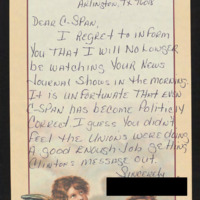 Arlington, TX 76018
Dear C-SPAN,
I Regret to inform
You THAT I Will No Longer
be Watching Your News
Journal Shows in the Morning.
It is Unfortunate That Even
C-SPAN has become Politically
Correct. I guess You didn't
Feel the Unions were doing
A good enough Job getting
Clinton's message out.
Sincerely